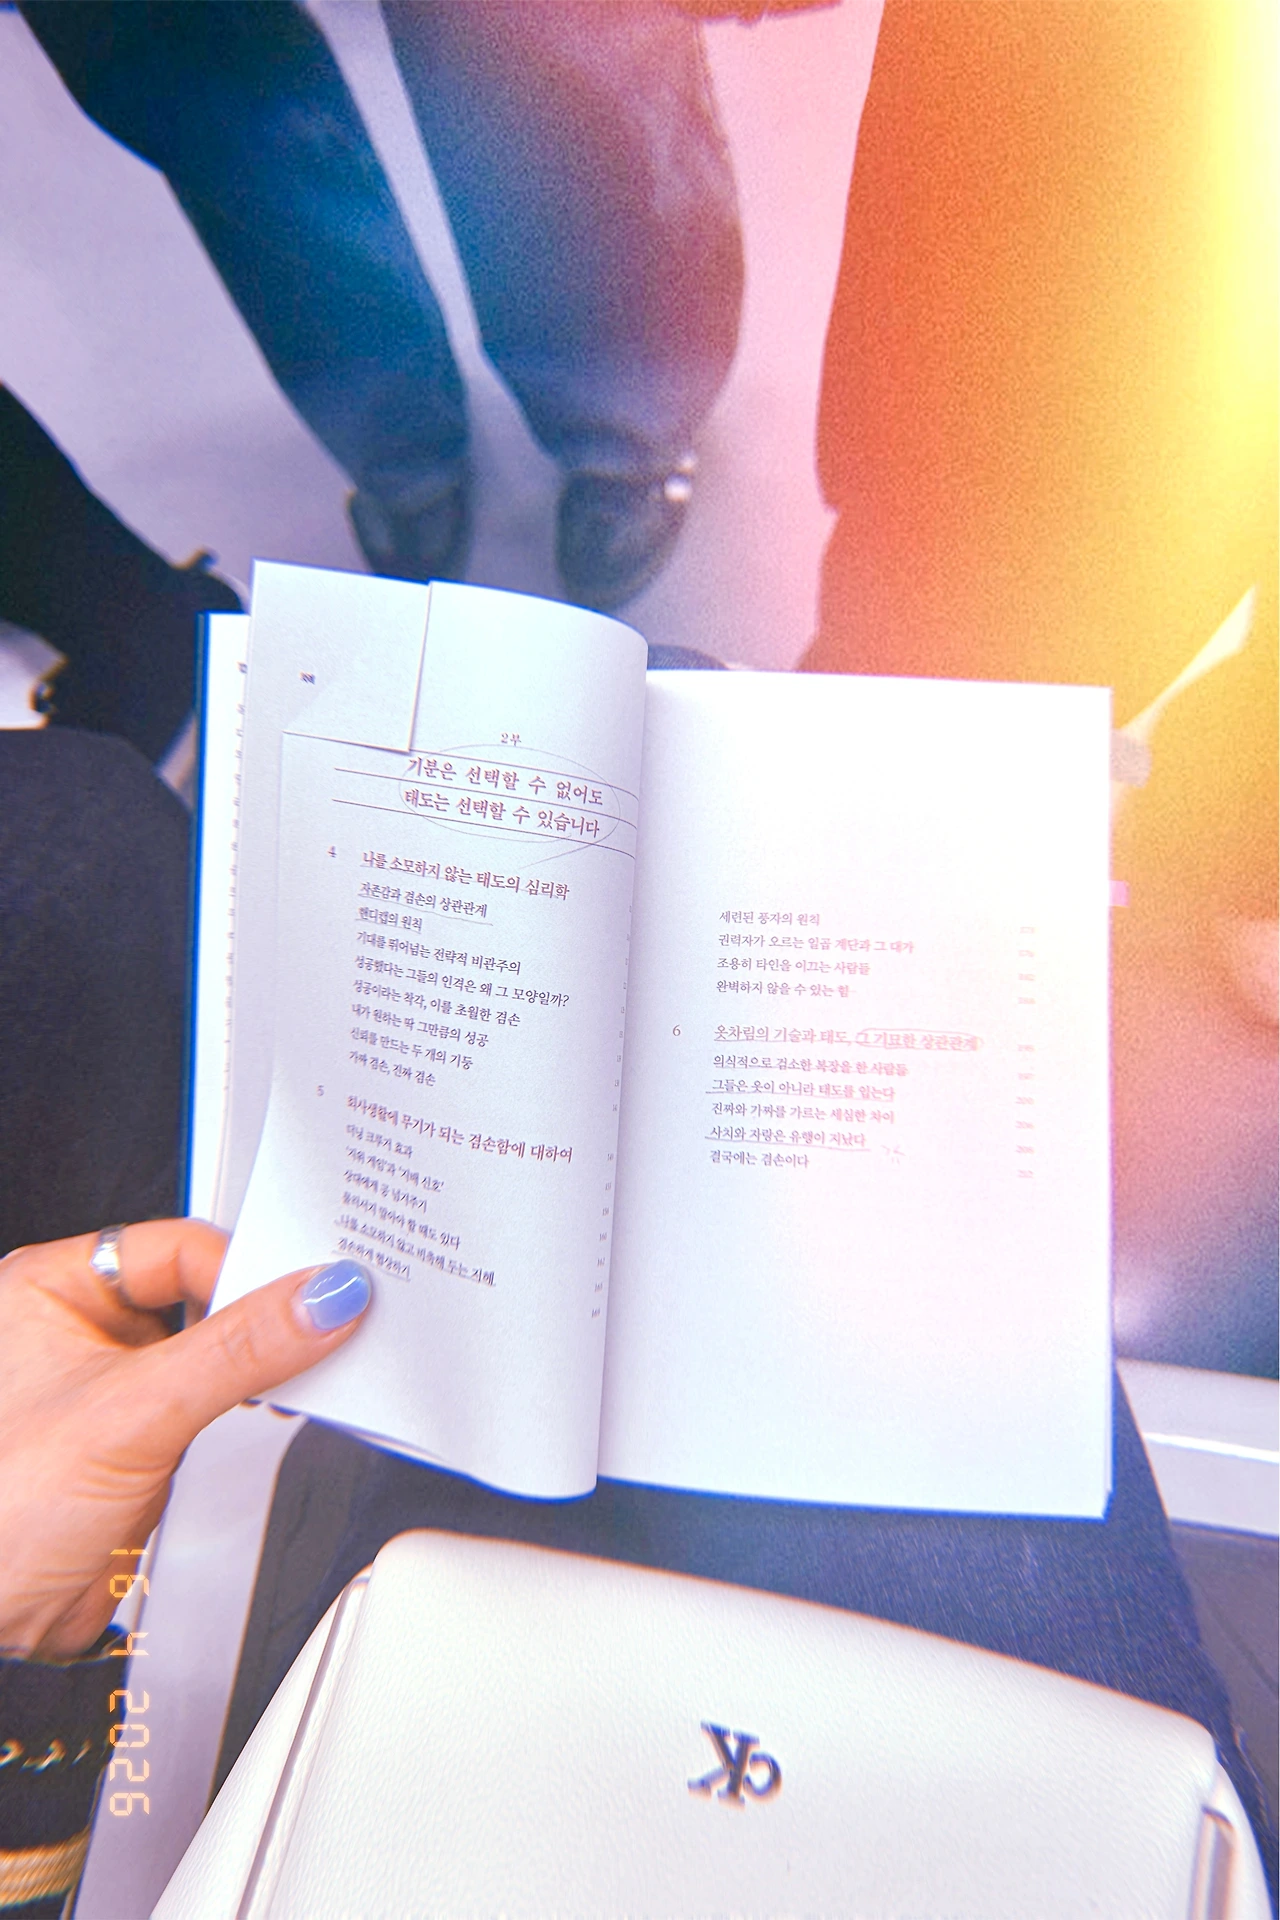 2부
기분은 선택할 수 없어도
태도는 선택할 수 있습니다
4 나를 소모하지 않는 태도의 심리학
자존감과 겸손의 상관관계
핸디캡의 원칙
기대를 뛰어넘는 전략적 비관주의
성공했다는 그들의 인격은 왜 그 모양일까?
성공이라는 착각, 이를 초월한 겸손
내가 원하는 딱 그만큼의 성공
신뢰를 만드는 두 개의 기둥
가짜 겸손, 진짜 겸손
5 회사생활에 무기가 되는 겸손함에 대하여
더닝 크루거 효과
'지위 게임'과 '지배 신호'
상대에게 공 넘겨주기
물러서지 말아야 할 때도 있다
나를 소모하지 않고 비축해 두는 지혜
겸손하게 협상하기
세련된 풍자의 원칙
권력자가 오르는 일곱 계단과 그 대가
조용히 타인을 이끄는 사람들
완벽하지 않을 수 있는 힘
6 옷차림의 기술과 태도, 그 기묘한 상관관계
의식적으로 검소한 복장을 한 사람들
그들은 옷이 아니라 태도를 입는다
진짜와 가짜를 가르는 세심한 차이
사치와 자랑은 유행이 지났다
결국에는 겸손이다
CK
16 4 2026